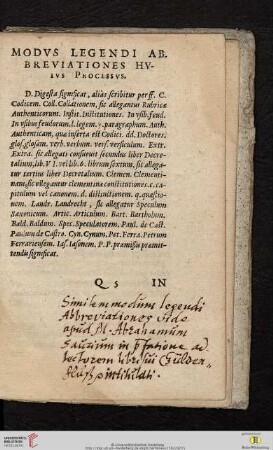 MODVS LEGENDI AB.
BREVIATIONES HV-
IVS PROCESSVS.
D. Digesta significat, aliàs scribitur per ff. C.
Codicem. Coll. Collationem, sic allegantur Rubricæ
Authenticorum. Instit. Institutiones. In vsib. feud.
In vsibus feudorum. l. legem. §. paragraphum. Auth.
Authenticam, quæ inserta est Codici. dd. Doctores.
glos. glosam. verb. verbum. vers. versiculum. Extr.
Extra. sic allegari consueuit secundus liber Decre-
talium, lib. VI. vel lib. 6. librum sextum, sic allega-
tur tertius liber Decretalium. Clemen. Clementi-
nam, sic allegantur clementinæ constitutiones. c. ca-
pitulum vel canonem. d. distinctionem. q. quæstio-
nem. Landr. Landrecht, sic allegatur Speculum
Saxonicum. Artic. Articulum. Bart. Bartholum.
Bald. Baldum. Spec. Speculatorem. Paul. de Cast.
Paulum de Castro. Cyn. Cynum. Pet. Ferra. Petrum
Ferrariensem. Ias. Iasonem. P. P. præmissis præmit-
tendis significat.
Q 5 IN
Similem modum legendi
Abbreviationes vide
apud M. Abrahamum
Saurium in præfatione ad
lectorem libri sui Gülden-